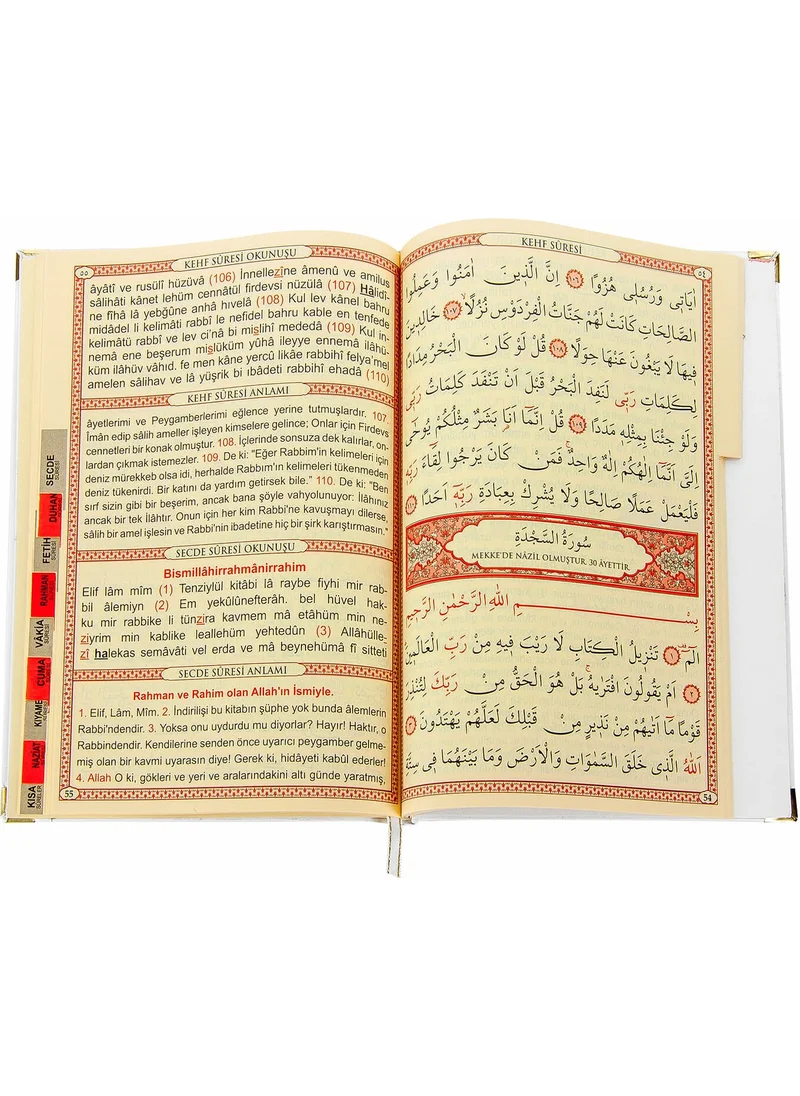 KEHF SÛRESİ
٥٤
اٰيَاتٖي وَرُسُلٖي هُزُوًا ﴿١٠٦﴾ اِنَّ الَّذٖينَ اٰمَنُوا وَعَمِلُوا
الصَّالِحَاتِ كَانَتْ لَهُمْ جَنَّاتُ الْفِرْدَوْسِ نُزُلًا ﴿١٠٧﴾ خَالِدٖينَ
فٖيهَا لَا يَبْغُونَ عَنْهَا حِوَلًا ﴿١٠٨﴾ قُلْ لَوْ كَانَ الْبَحْرُ مِدَادًا
لِكَلِمَاتِ رَبّٖي لَنَفِدَ الْبَحْرُ قَبْلَ اَنْ تَنْفَدَ كَلِمَاتُ رَبّٖي
وَلَوْ جِئْنَا بِمِثْلِهٖ مَدَدًا ﴿١٠٩﴾ قُلْ اِنَّمَا اَنَا بَشَرٌ مِثْلُكُمْ يُوحٰى
اِلَيَّ اَنَّمَا اِلٰهُكُمْ اِلٰهٌ وَاحِدٌ فَمَنْ كَانَ يَرْجُوا لِقَاءَ رَبِّهٖ
فَلْيَعْمَلْ عَمَلًا صَالِحًا وَلَا يُشْرِكْ بِعِبَادَةِ رَبِّهٖ اَحَدًا ﴿١١٠﴾
سُورَةُ السَّجْدَةِ
MEKKE'DE NÂZİL OLMUŞTUR. 30 ÂYETTİR.
بِسْمِ اللّٰهِ الرَّحْمٰنِ الرَّحٖيمِ
الٓمٓ ﴿١﴾ تَنْزٖيلُ الْكِتَابِ لَا رَيْبَ فٖيهِ مِنْ رَبِّ الْعَالَمٖينَ
﴿٢﴾ اَمْ يَقُولُونَ افْتَرٰيهُ بَلْ هُوَ الْحَقُّ مِنْ رَبِّكَ لِتُنْذِرَ
قَوْمًا مَا اَتٰيهُمْ مِنْ نَذٖيرٍ مِنْ قَبْلِكَ لَعَلَّهُمْ يَهْتَدُونَ ﴿٣﴾
اَللّٰهُ الَّذٖي خَلَقَ السَّمٰوَاتِ وَالْاَرْضَ وَمَا بَيْنَهُمَا فٖي سِتَّةِ
54
٥٥
KEHF SÛRESİ OKUNUŞU
âyâtî ve rusulî hüzüvâ (106) İnnellezîne âmenû ve amilus
sâlihâti kânet lehüm cennâtül firdevsi nüzülâ (107) Hâlidî-
ne fîhâ lâ yebğûne anhâ hıvelâ (108) Kul lev kânel bahru
midâdel li kelimâti rabbî le nefidel bahru kable en tenfede
kelimâtü rabbî ve lev ci'nâ bi mislihî mededâ (109) Kul in-
nemâ ene beşerum mislüküm yûhâ ileyye ennemâ ilâhü-
küm ilâhüv vâhıd. fe men kâne yercû likâe rabbihî felya'mel
amelen sâlihav ve lâ yüşrik bi ıbâdeti rabbihî ehadâ (110)
KEHF SÛRESİ ANLAMI
âyetlerimi ve Peygamberlerimi eğlence yerine tutmuşlardır. 107.
Îmân edip sâlih ameller işleyen kimselere gelince; Onlar için Firdevs
cennetleri bir konak olmuştur. 108. İçlerinde sonsuza dek kalırlar, on-
lardan çıkmak istemezler. 109. De ki: "Eğer Rabbim'in kelimeleri için
deniz mürekkeb olsa idi, herhalde Rabbım'ın kelimeleri tükenmeden
deniz tükenirdi. Bir katını da yardım getirsek bile." 110. De ki: "Ben
sırf sizin gibi bir beşerim, ancak bana şöyle vahyolunuyor: İlâhınız
ancak bir tek İlâhtır. Onun için her kim Rabbi'ne kavuşmayı dilerse,
sâlih bir amel işlesin ve Rabbi'nin ibadetine hiç bir şirk karıştırmasın."
SECDE SÛRESİ OKUNUŞU
Bismillâhirrahmânirrahim
Elif lâm mîm (1) Tenziylül kitâbi lâ raybe fiyhi mir rab-
bil âlemiyn (2) Em yekûlûnefterâh. bel hüvel hak-
ku mir rabbike li tünzira kavmem mâ etâhüm min ne-
ziyrim min kablike leallehüm yehtedûn (3) Allahülle-
zî halekas semâvâti vel erda ve mâ beynehümâ fî sitteti
SECDE SÛRESİ ANLAMI
Rahman ve Rahim olan Allah'ın İsmiyle.
1. Elif, Lâm, Mîm. 2. İndirilişi bu kitabın şüphe yok bunda âlemlerin
Rabbi'ndendir. 3. Yoksa onu uydurdu mu diyorlar? Hayır! Haktır, o
Rabbindendir. Kendilerine senden önce uyarıcı peygamber gelme-
miş olan bir kavmi uyarasın diye! Gerek ki, hidâyeti kabûl ederler!
4. Allah O ki, gökleri ve yeri ve aralarındakini altı günde yaratmış,
55
SECDE
SÛRESİ
DUHAN
FETİH
SÛRESİ
RAHMAN
VÂKIA
SÛRESİ
CUMA
KIYAME
NAZİAT
KISA
SÛRELER